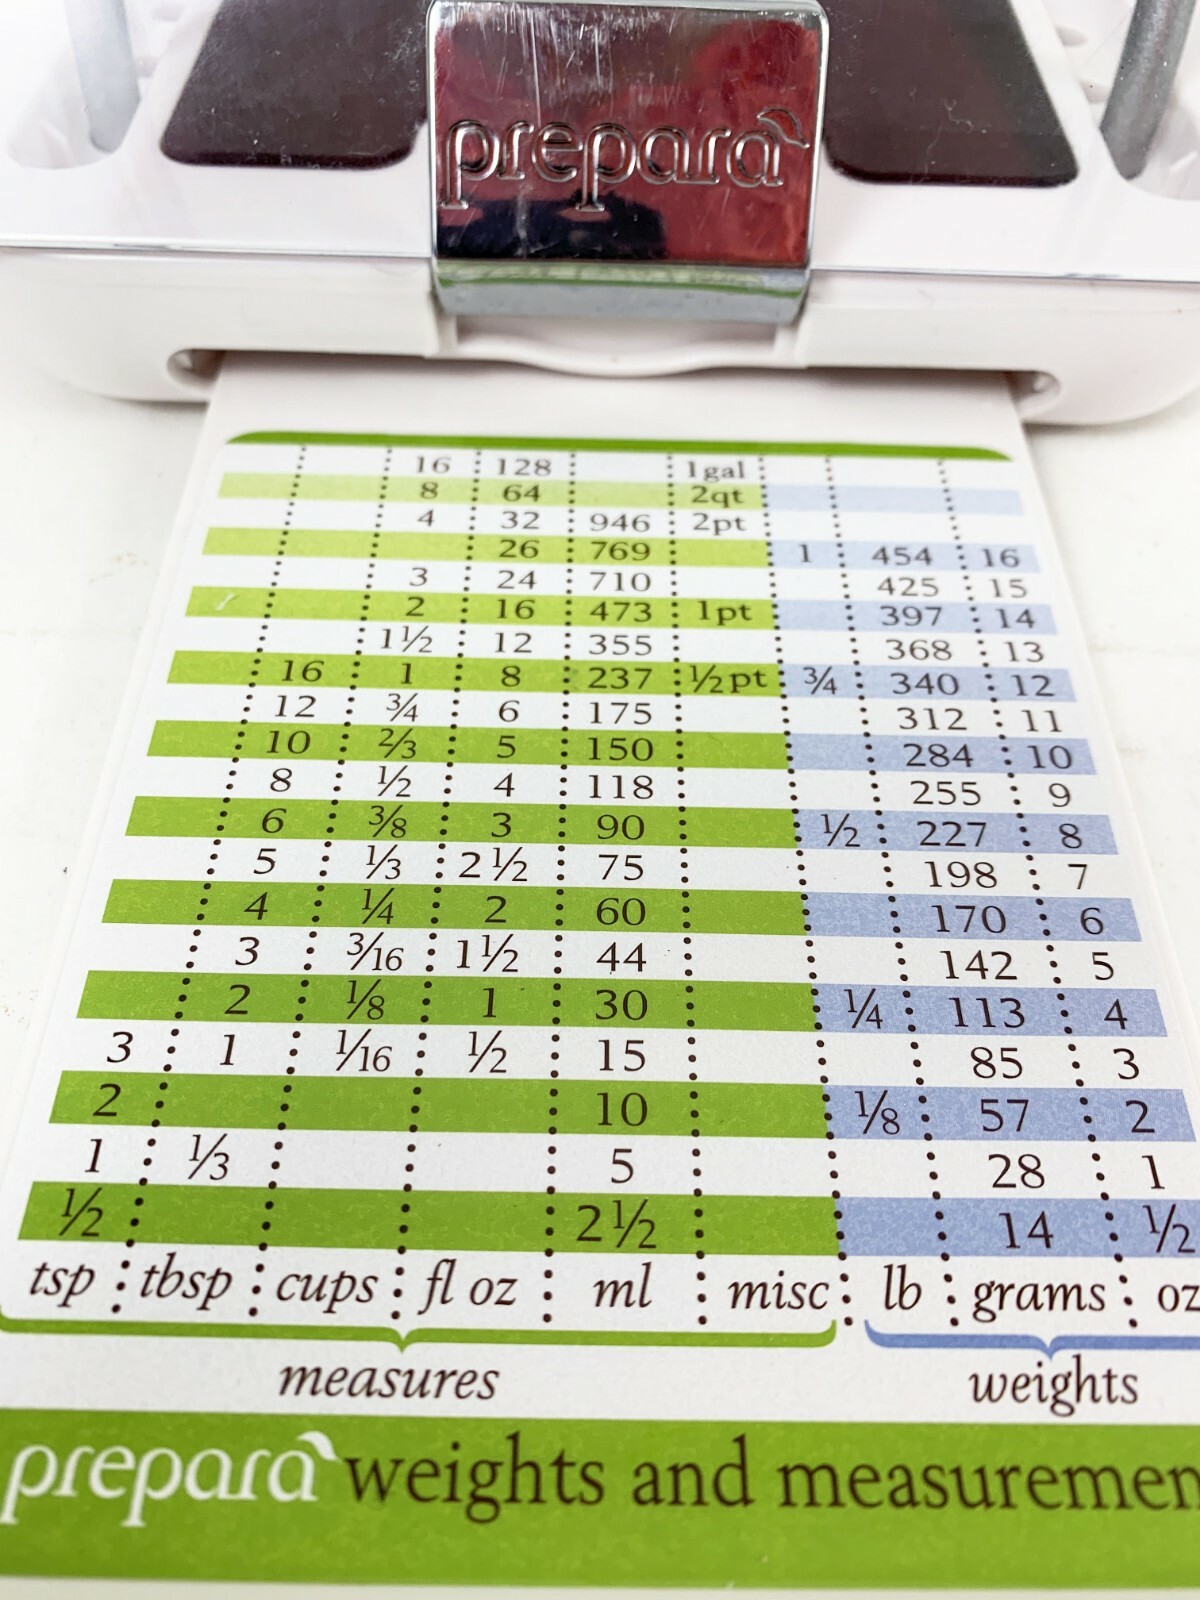 prepara
16 128 1gal
8 64 2qt
4 32 946 2pt
26 769 1 454 16
3 24 710 425 15
2 16 473 1pt 397 14
1½ 12 355 368 13
16 1 8 237 ½pt ¾ 340 12
12 ¾ 6 175 312 11
10 ⅔ 5 150 284 10
8 ½ 4 118 255 9
6 ⅜ 3 90 ½ 227 8
5 ⅓ 2½ 75 198 7
4 ¼ 2 60 170 6
3 3/16 1½ 44 142 5
2 ⅛ 1 30 ¼ 113 4
3 1 1/16 ½ 15 85 3
2 10 ⅛ 57 2
1 ⅓ 5 28 1
½ 2½ 14 ½
tsp tbsp cups fl oz ml misc lb grams oz
measures weights
prepara weights and measuremen